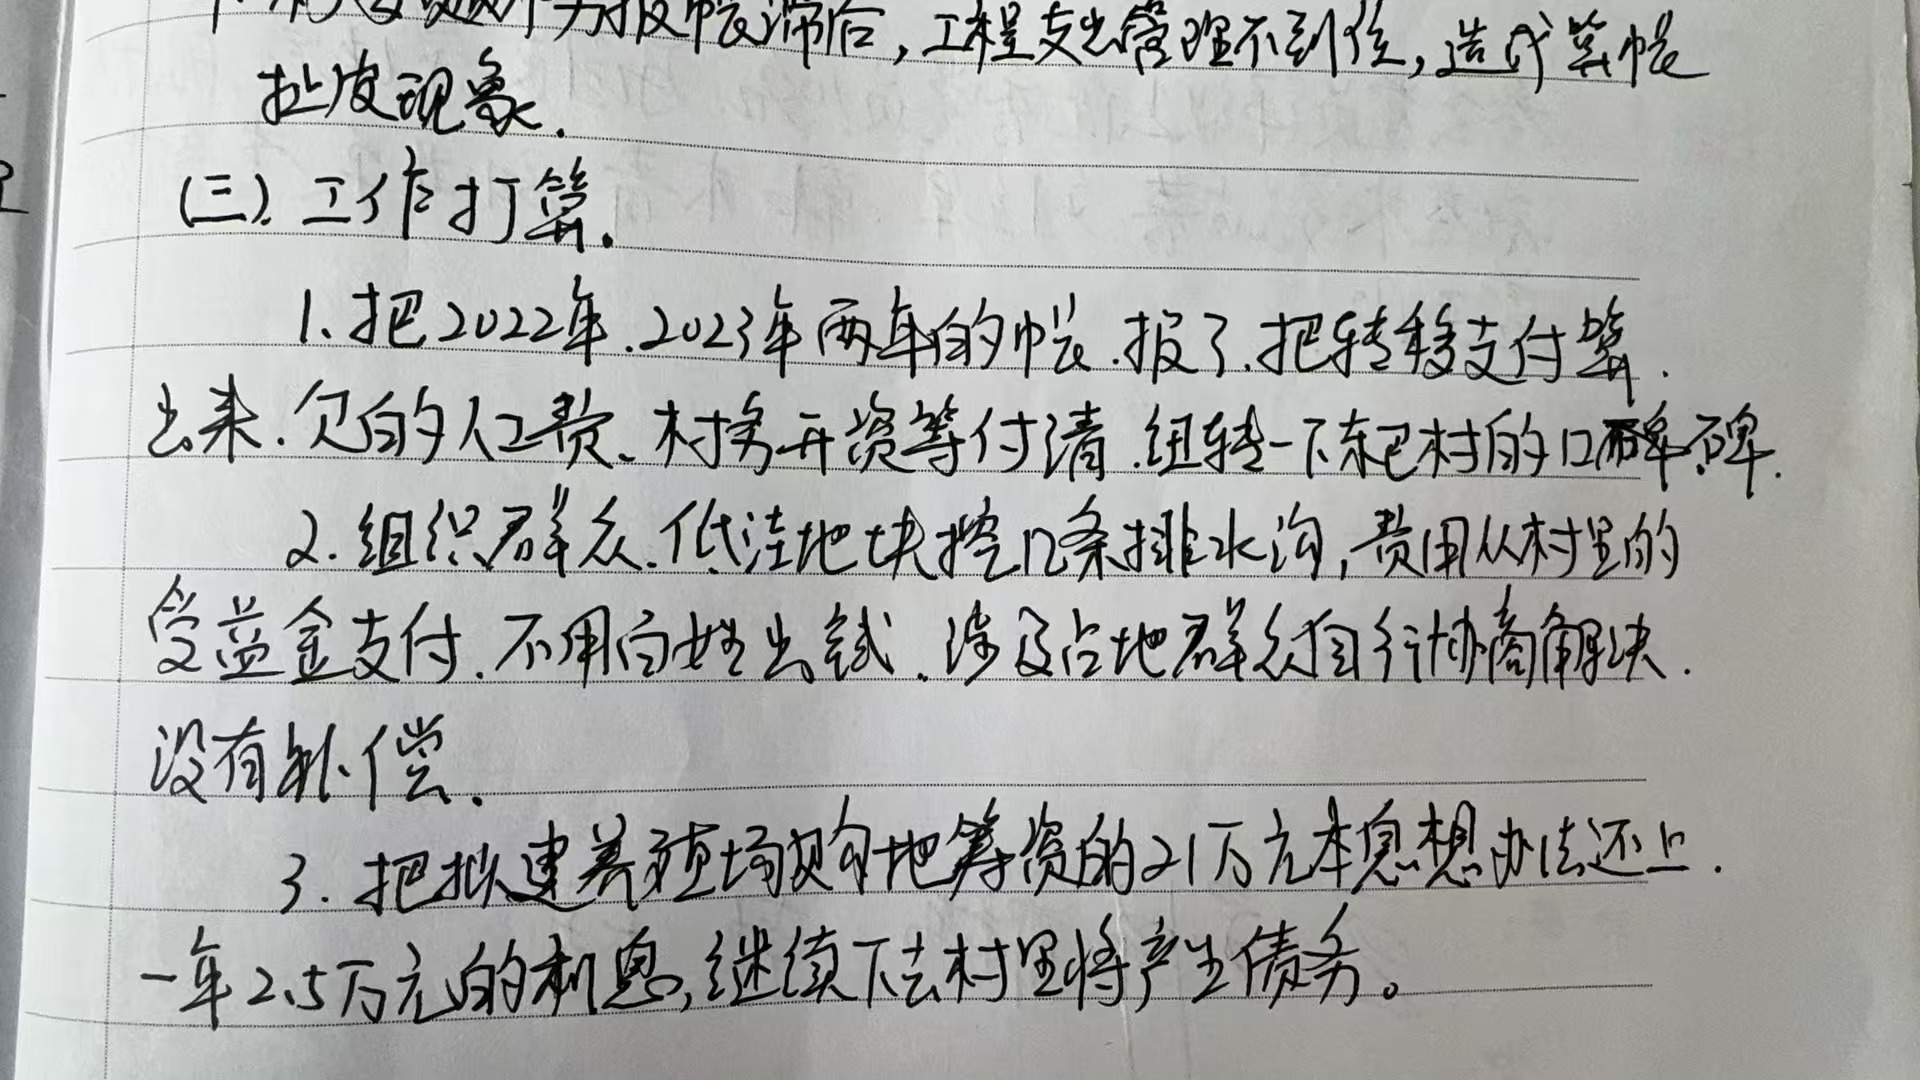 报帐滞后,工程支出管理不到位,造成算帐
扯皮现象.
(三).工作打算.
1.把2022年.2023年两年的帐.报了.把转移支付算.
出来.欠的人工费、村务开资等付清.纽转一下东巴村的口碑.
2.组织群众.低洼地块挖几条排水沟,费用从村里的
受益金支付.不用百姓出钱.涉及占地群众自行协商解决.
没有补偿.
3.把拟建养殖场购地筹资的21万元本息想办法还上.
一年2.5万元的利息,继续下去村里将产生债务。